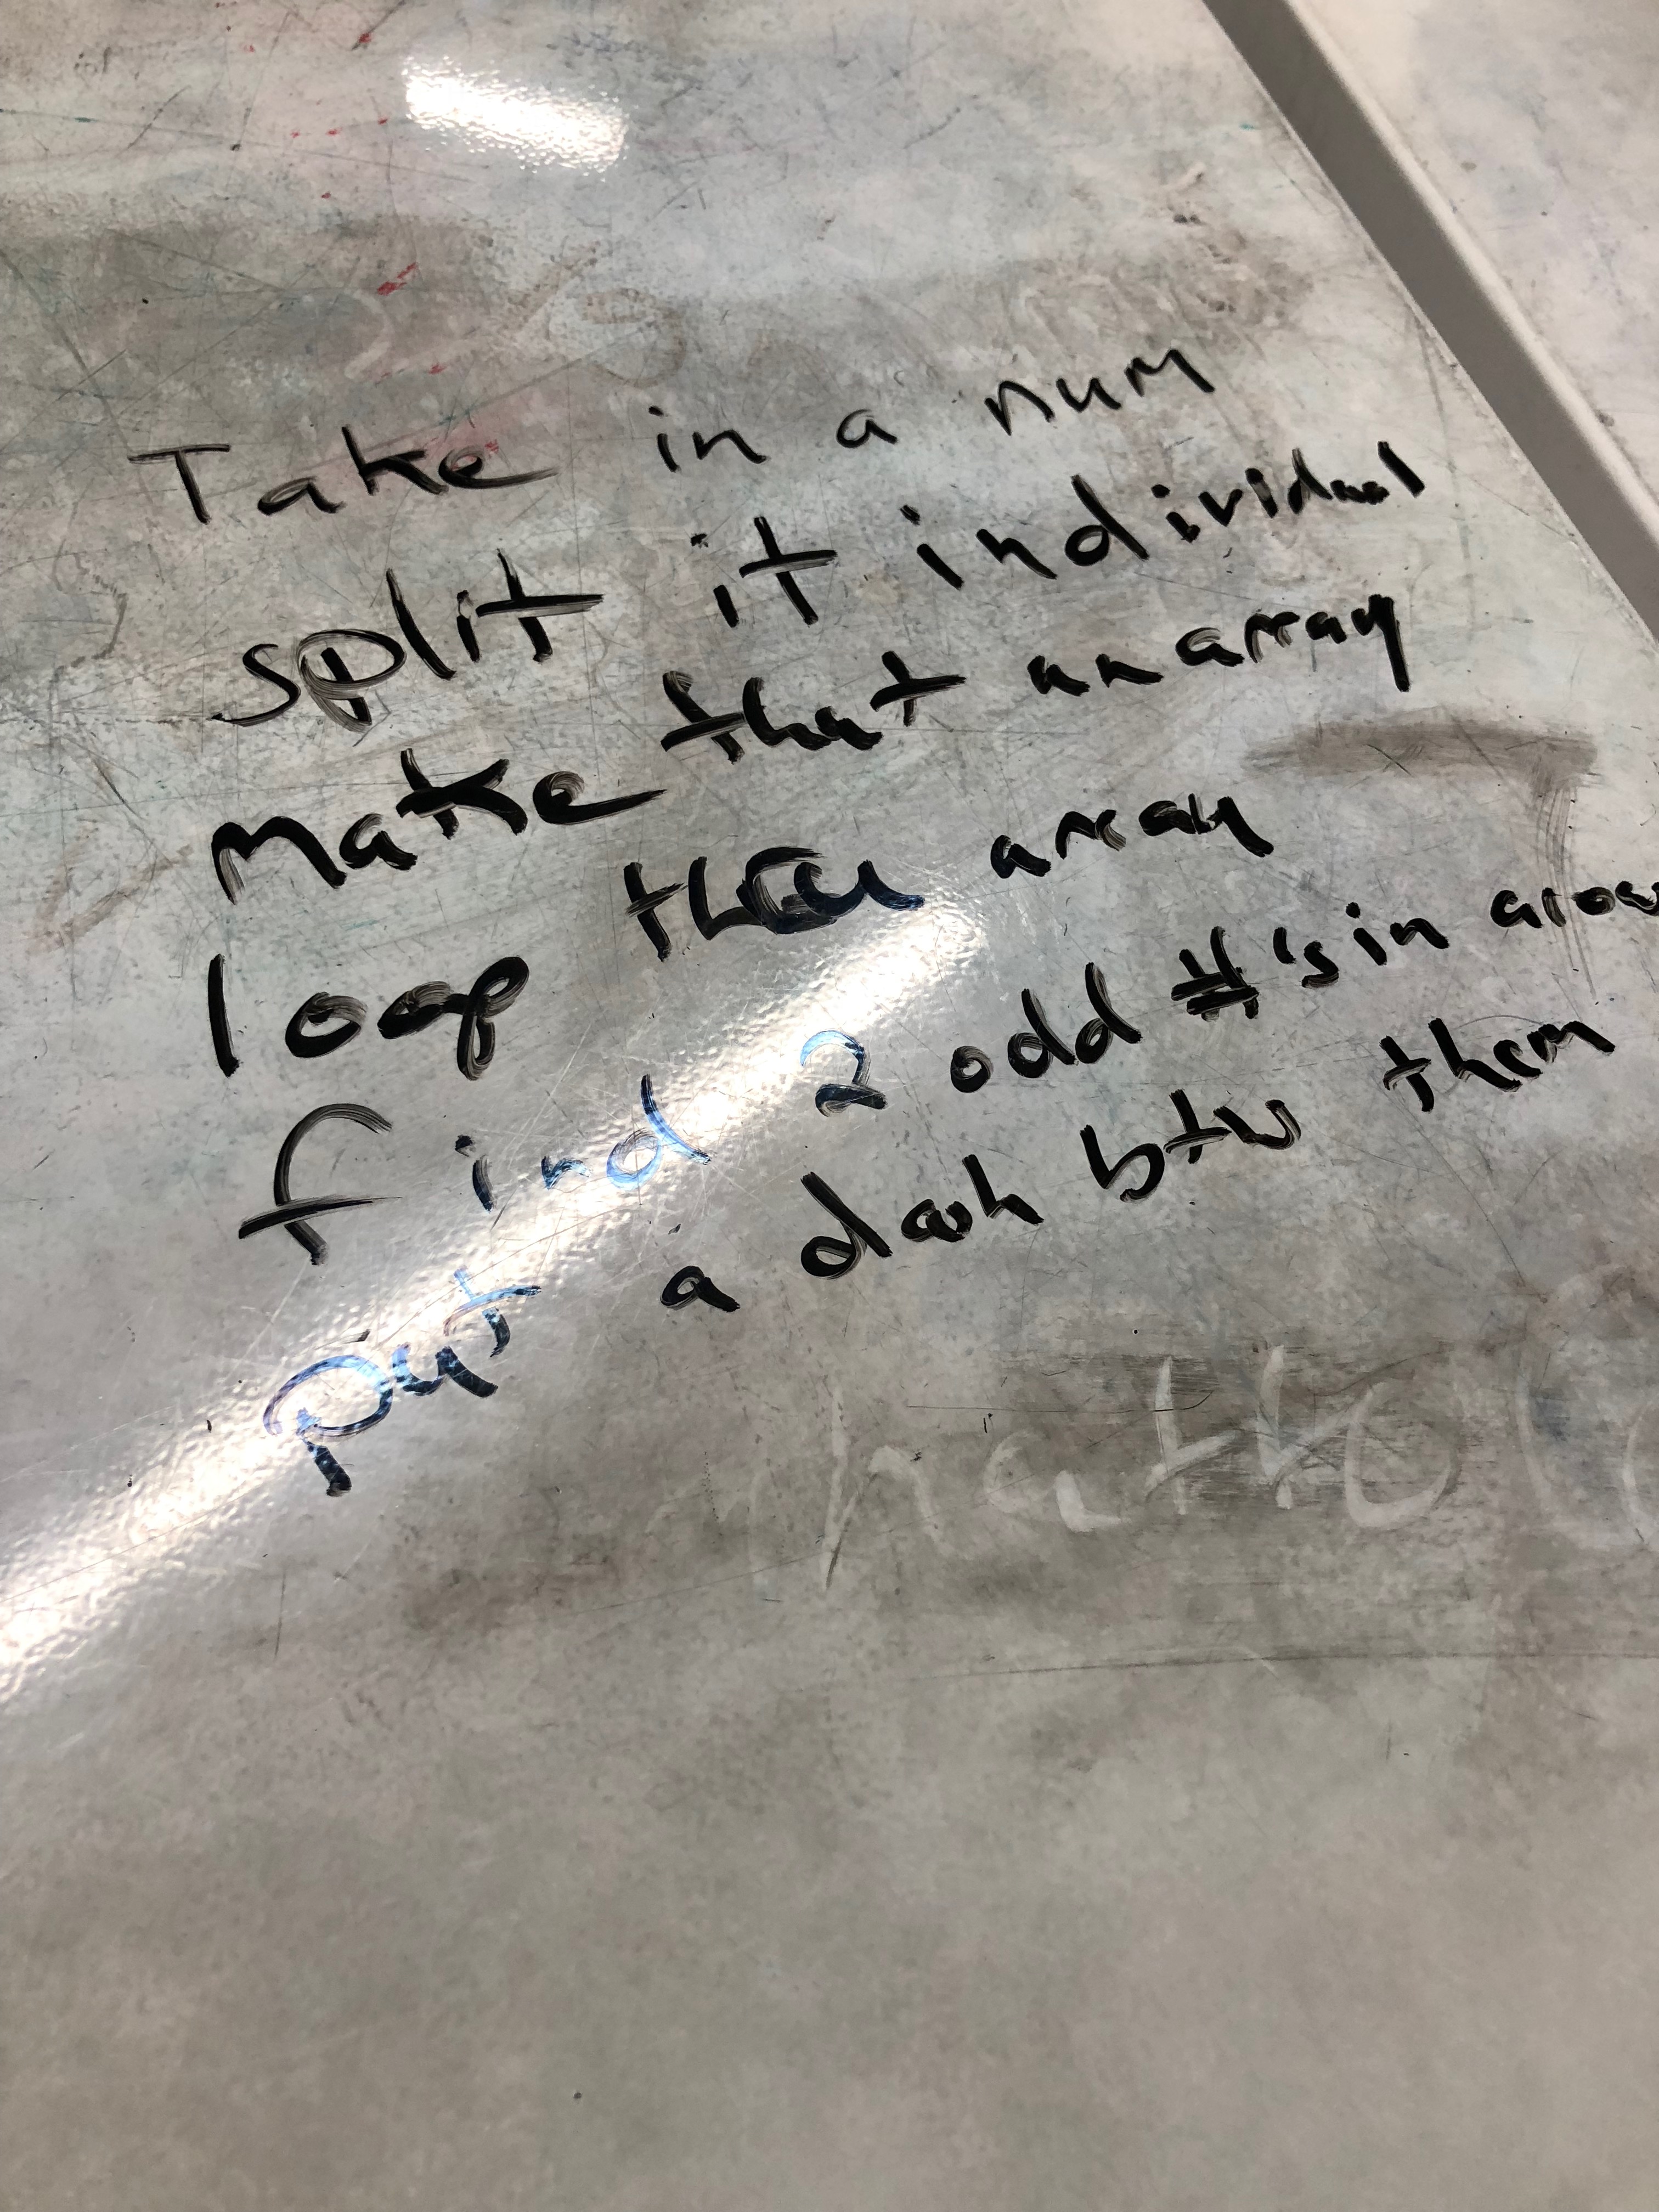 Take in a num
split it individual
make that an array
loop thru array
find 2 odd #'s in arow
put a dash btw them